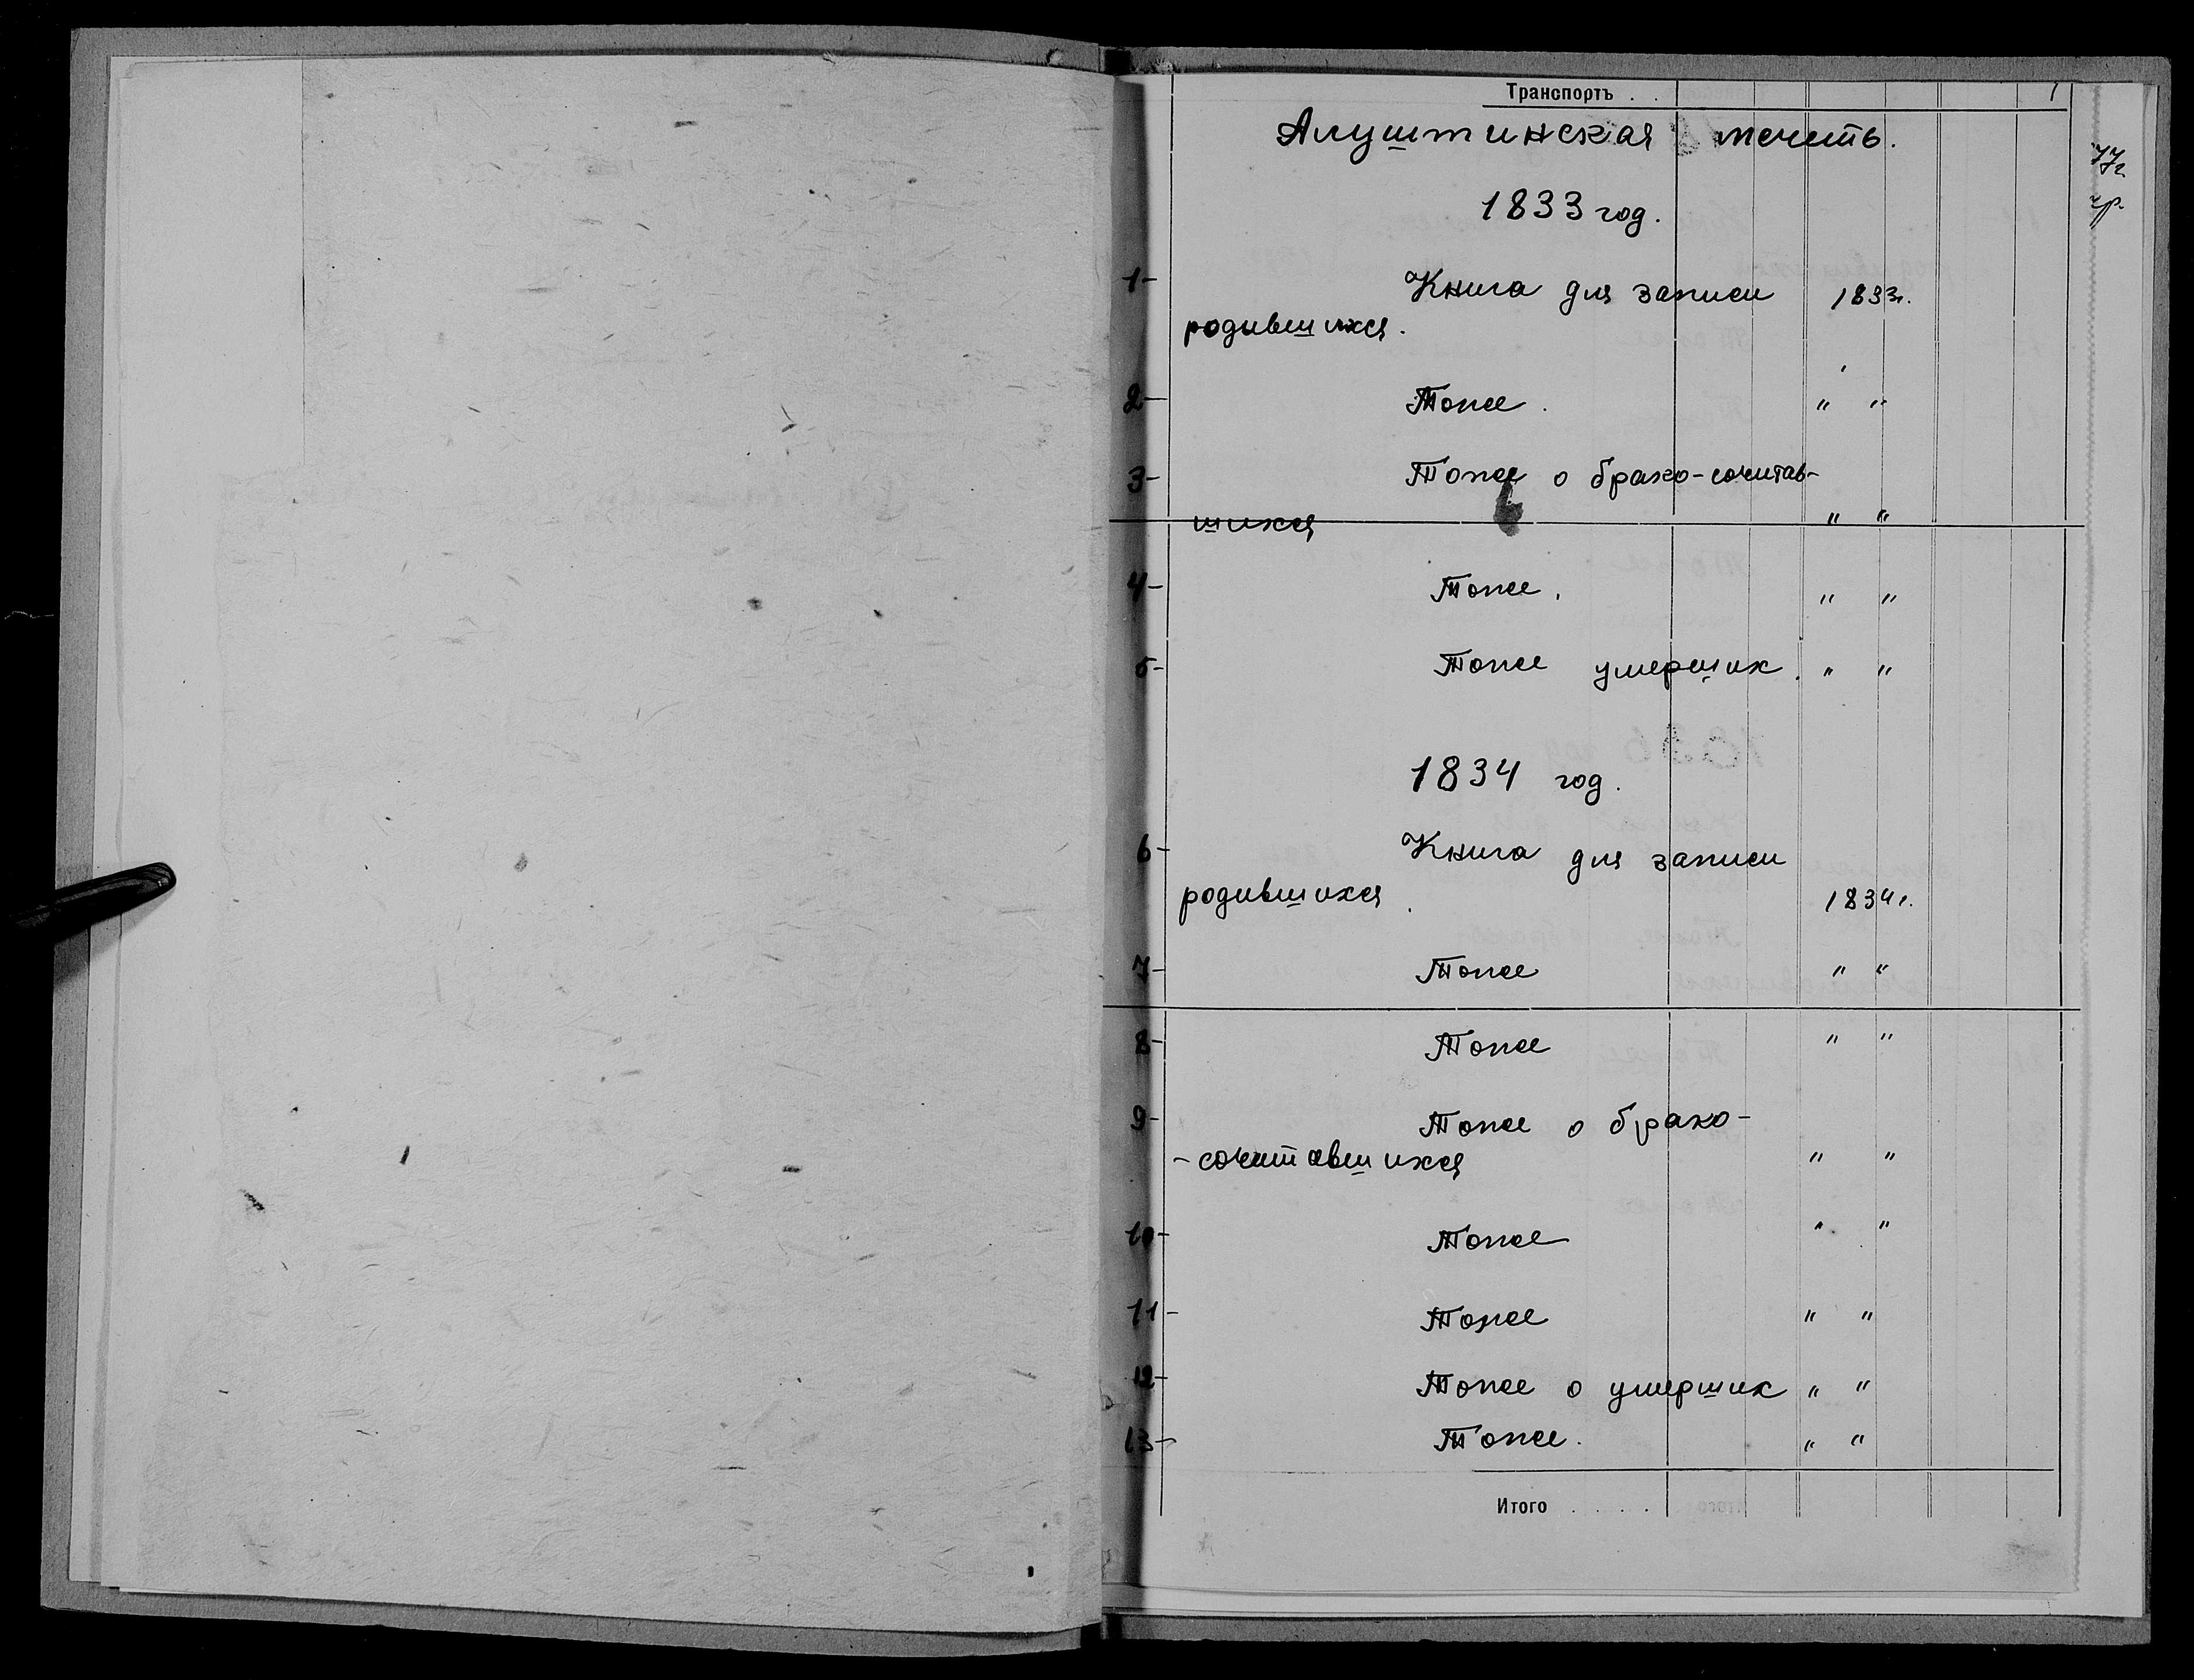 Транспортъ . .
Алуштинская мечеть.
1833 год.
1- Книга для записи 1833г.
родившихся.
2- Тоже. " "
3- Тоже о брако-сочитав-
шихся " "
4- Тоже. " "
5- Тоже умерших. " "
1834 год.
6- Книга для записи
родившихся. 1834г.
7- Тоже " "
8- Тоже " "
9- Тоже о брако-
-сочитавшихся " "
10- Тоже " "
11- Тоже " "
12- Тоже о умерших " "
13- Тоже. " "
Итого . . . . .